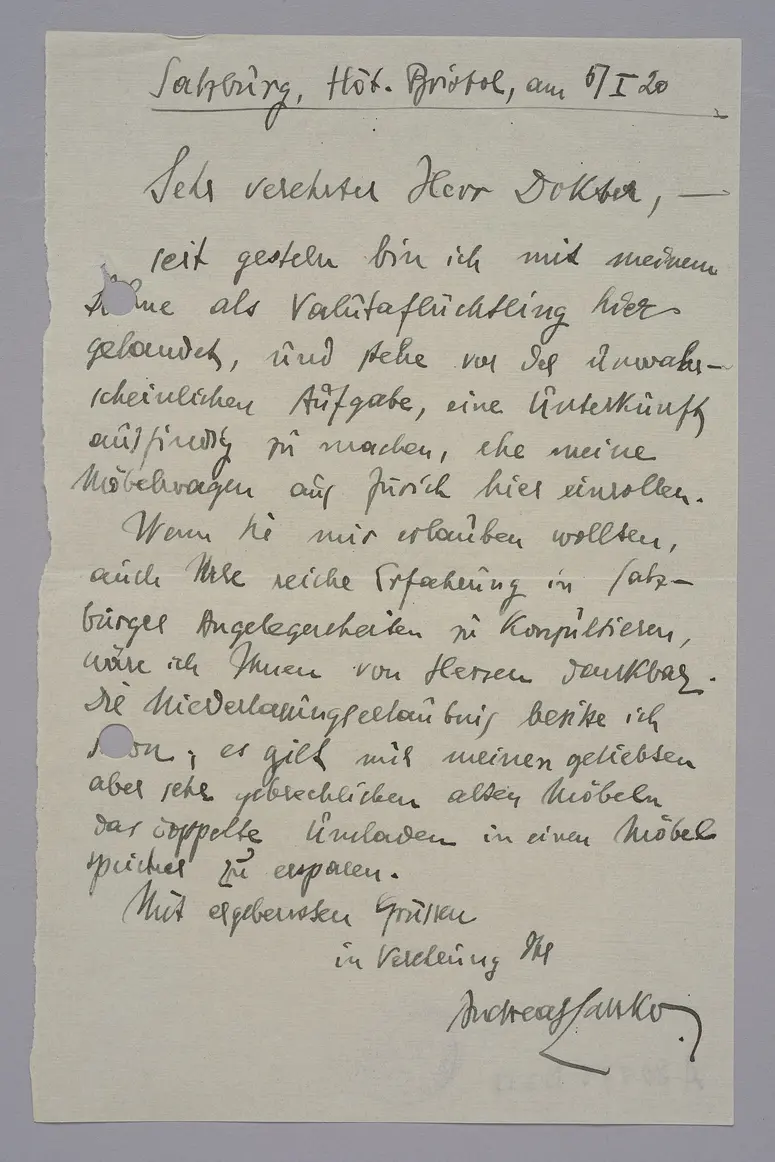 Salzburg, Hôt. Bristol, am 6/I 20
Sehr verehrter Herr Doktor, —
seit gestern bin ich mit meinem
Sohne als Valutaflüchtling hier
gelandet, und stehe vor der unwahr-
scheinlichen Aufgabe, eine Unterkunft
ausfindig zu machen, ehe meine
Möbelwagen aus Zürich hier einrollen.
Wenn Sie mir erlauben wollten,
auch Ihre reiche Erfahrung in Salz-
burger Angelegenheiten zu konsultieren,
wäre ich Ihnen von Herzen dankbar.
Die Niederlassungserlaubnis besitze ich
schon; es gilt mir meinen geliebten
aber sehr gebrechlichen alten Möbeln
das doppelte Umladen in einen Möbel
speicher zu ersparen.
Mit ergebensten Grüssen
in Verehrung Ihr
Andreas Latzko